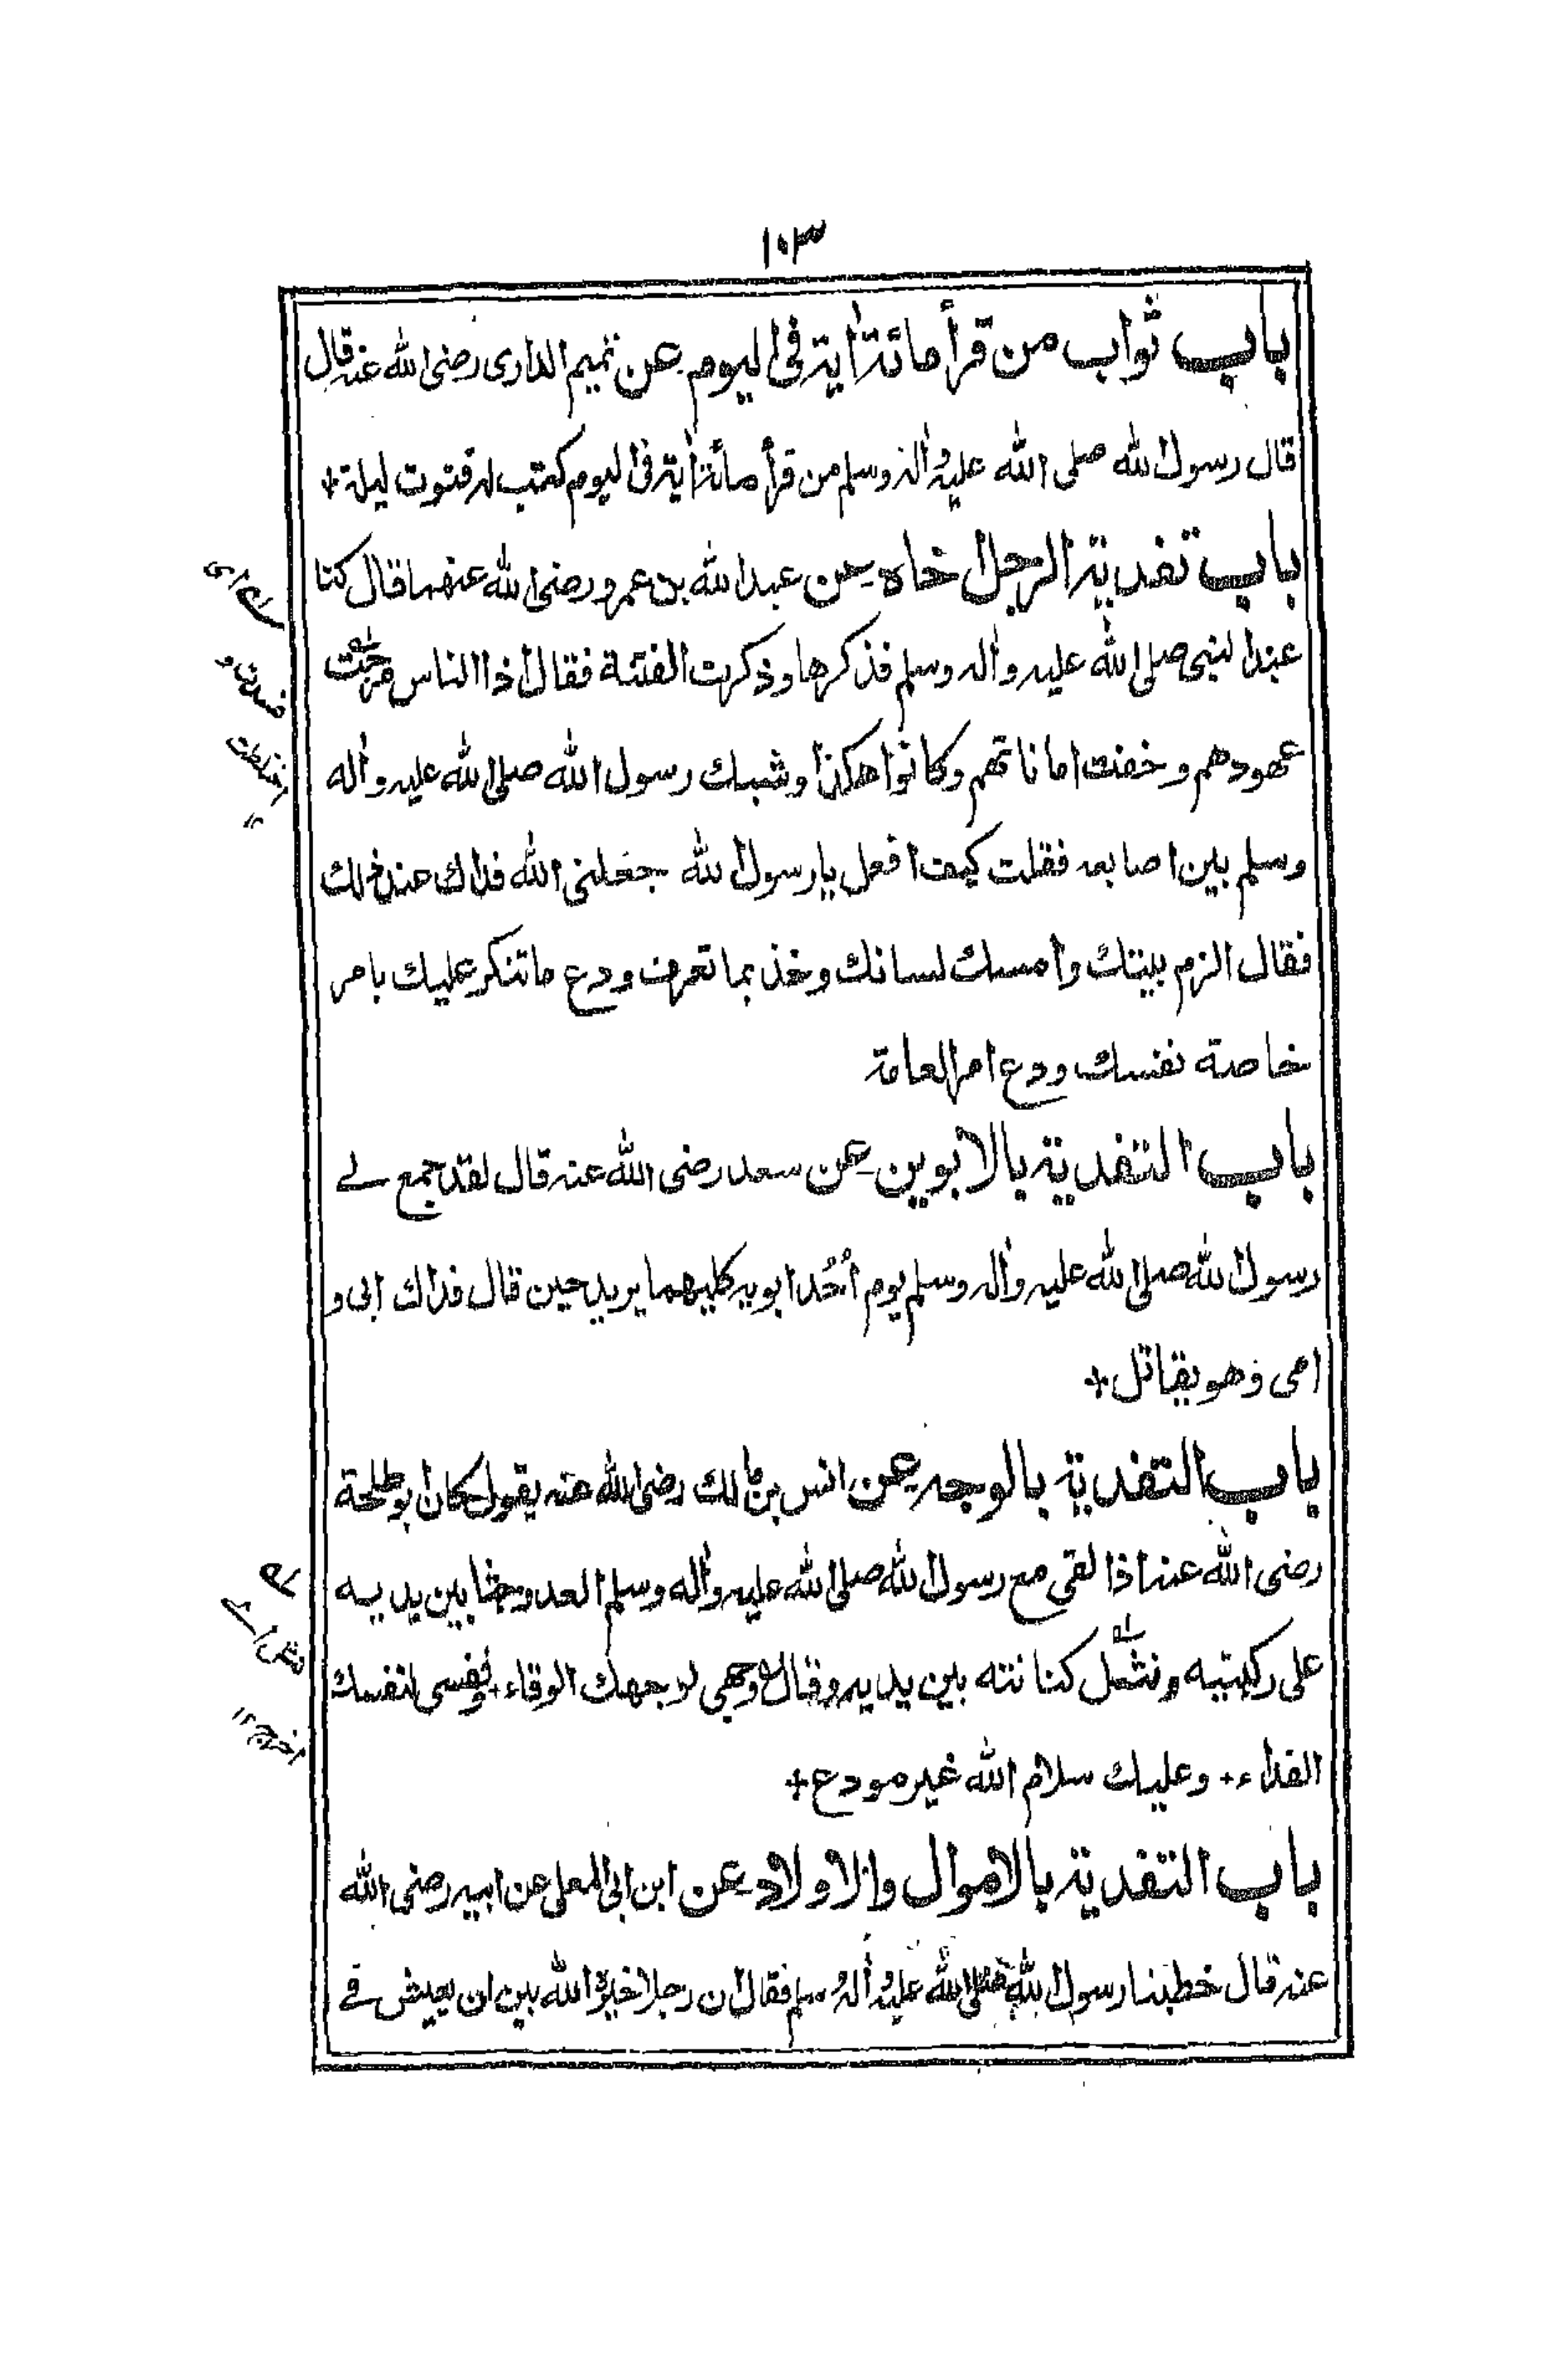 ١٠٣
باب ثواب من قرأ مائة أية فى اليوم عن تميم الدارى رضى الله عنه قال
قال رسول الله صلى الله عليه وأله وسلم من قرأ مائة أية فى ليوم كتب له قنوت ليلة +
باب تفدية الرجل اخاه عن عبد الله بن عمرو رضى الله عنهما قال كنا
عند النبى صلى الله عليه وأله وسلم فذكرها وذكرت الفتنة فقال اذا الناس مرجت
عهودهم وخفت اماناتهم وكانوا هكذا وشبك رسول الله صلى الله عليه وأله
وسلم بين اصابعه فقلت كيف افعل يا رسول الله جعلنى الله فداك عند ذلك
فقال الزم بيتك وامسك لسانك وخذ بما تعرف ودع ما تنكر عليك بامر
خاصة نفسك ودع امر العامة
باب التفدية بالابوين عن سعد رضى الله عنه قال لقد جمع لے
رسول الله صلى الله عليه وأله وسلم يوم أُحُد ابويه كليهما يريد حين قال فداك ابى و
امى وهو يقاتل +
باب التفدية بالوجه عن انس بن مالك رضى الله عنه يقول كان ابو طلحة
رضى الله عنه اذا لقى مع رسول الله صلى الله عليه وأله وسلم العدو جثا بين يديه
على ركبتيه ونثل كنانته بين يديه وقال وجهى لوجهك الوقاء + ونفسى لنفسك
الفداء + وعليك سلام الله غير مودع +
باب التفدية بالاموال والاولاد عن ابن ابى المعلى عن ابيه رضى الله
عنه قال خطبنا رسول الله صلى الله عليه وأله وسلم فقال ان رجلا خيره الله بين ان يعيش فے
اى
فسدت و
اختلطت
١٢
له
نثل اے
اخرج ١٢